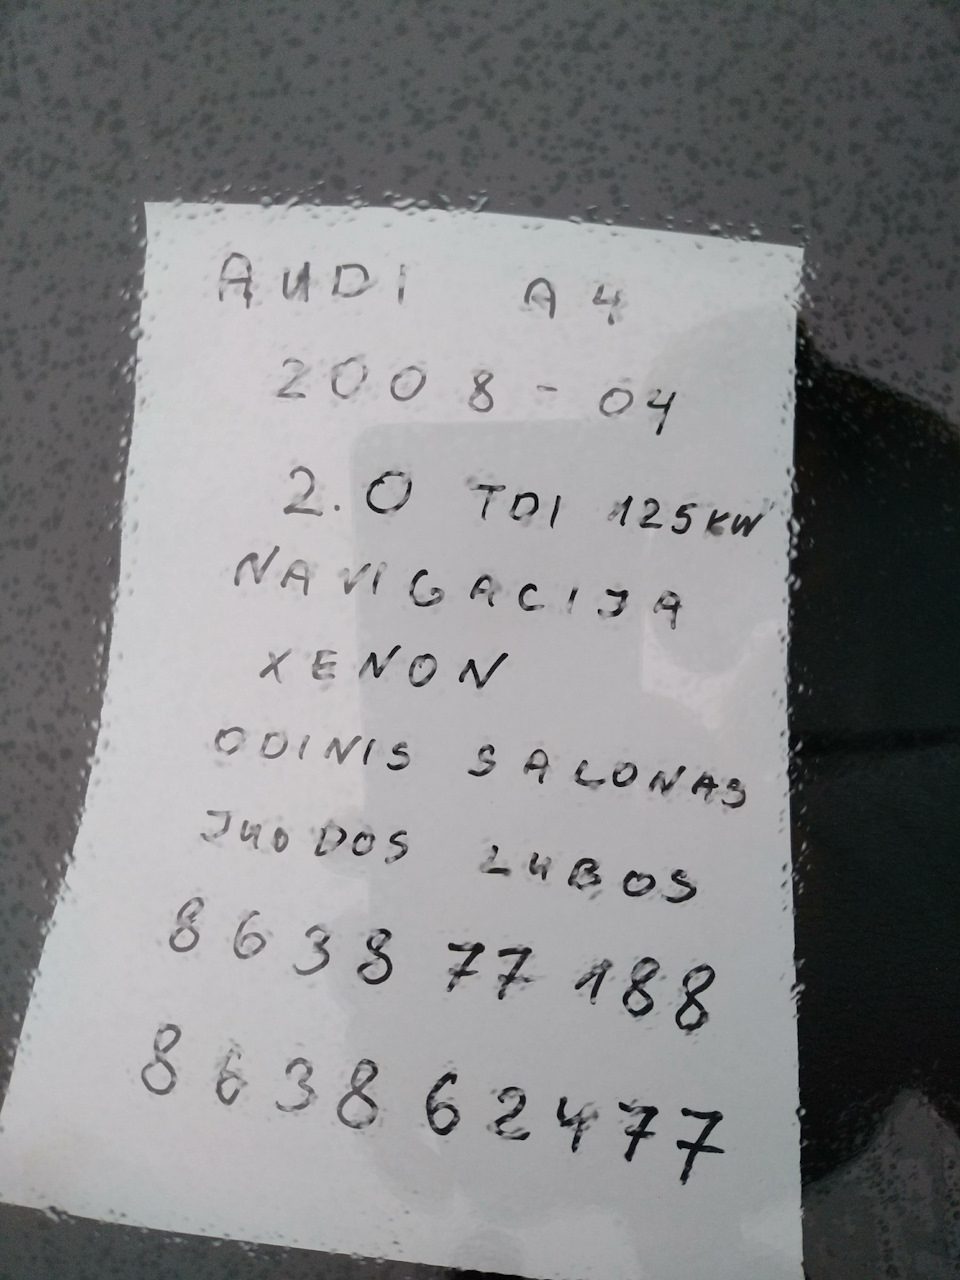 AUDI A4
2008-04
2.0 TDI 125KW
NAVIGACIJA
XENON
ODINIS SALONAS
JUODOS LUBOS
8638 77 188
8638 62477